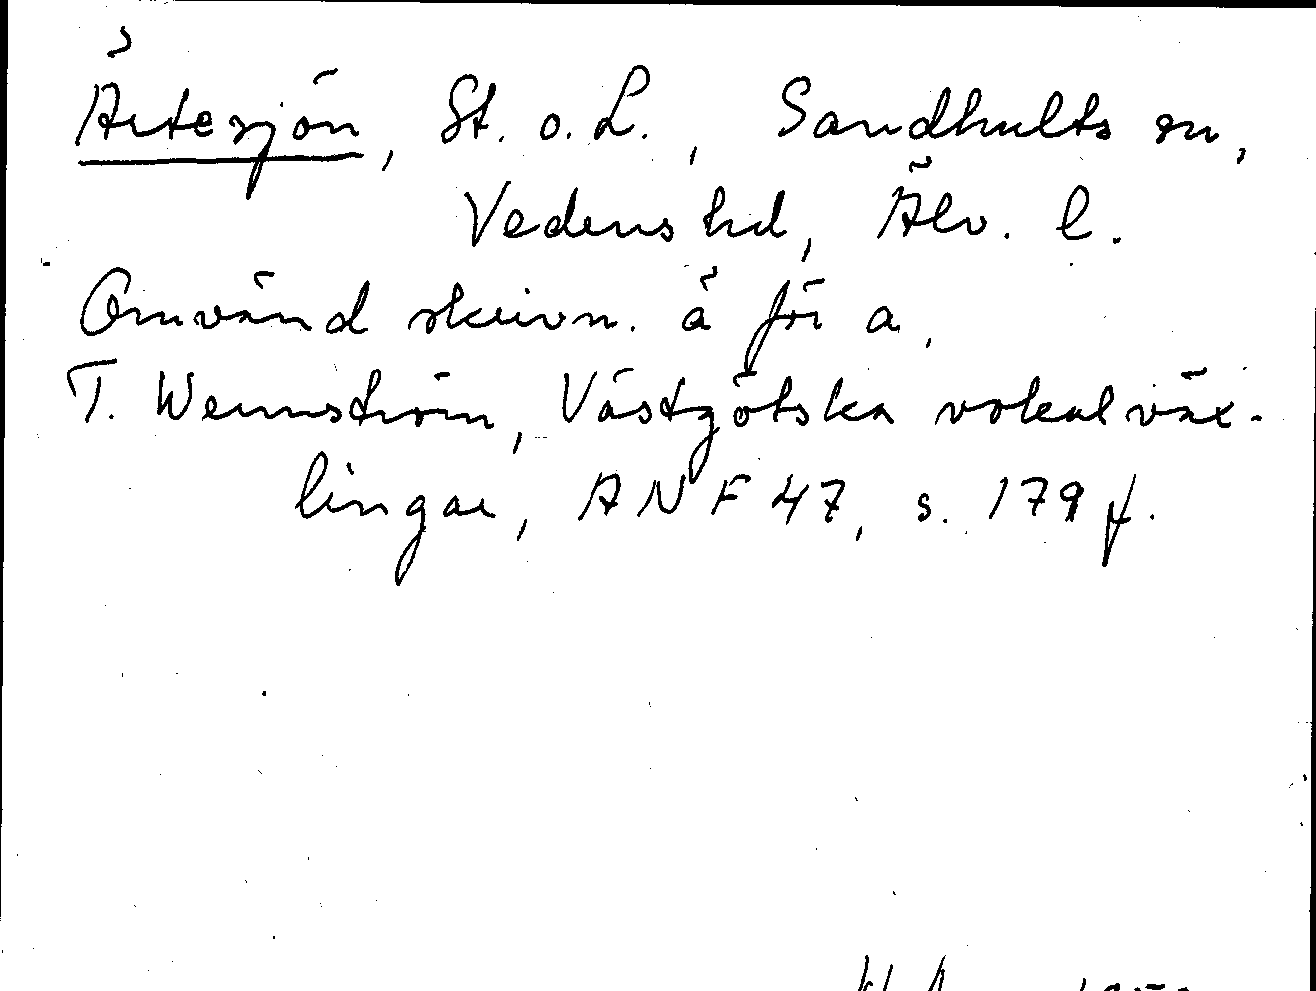 Årtesjön, St. o. L., Sandhults sn,
Vedens hd, Älv. l.
Omvänd skrivn. å för a.
T. Wennström, Västgötska vokalväx-
lingar, ANF 47, s. 179 f.